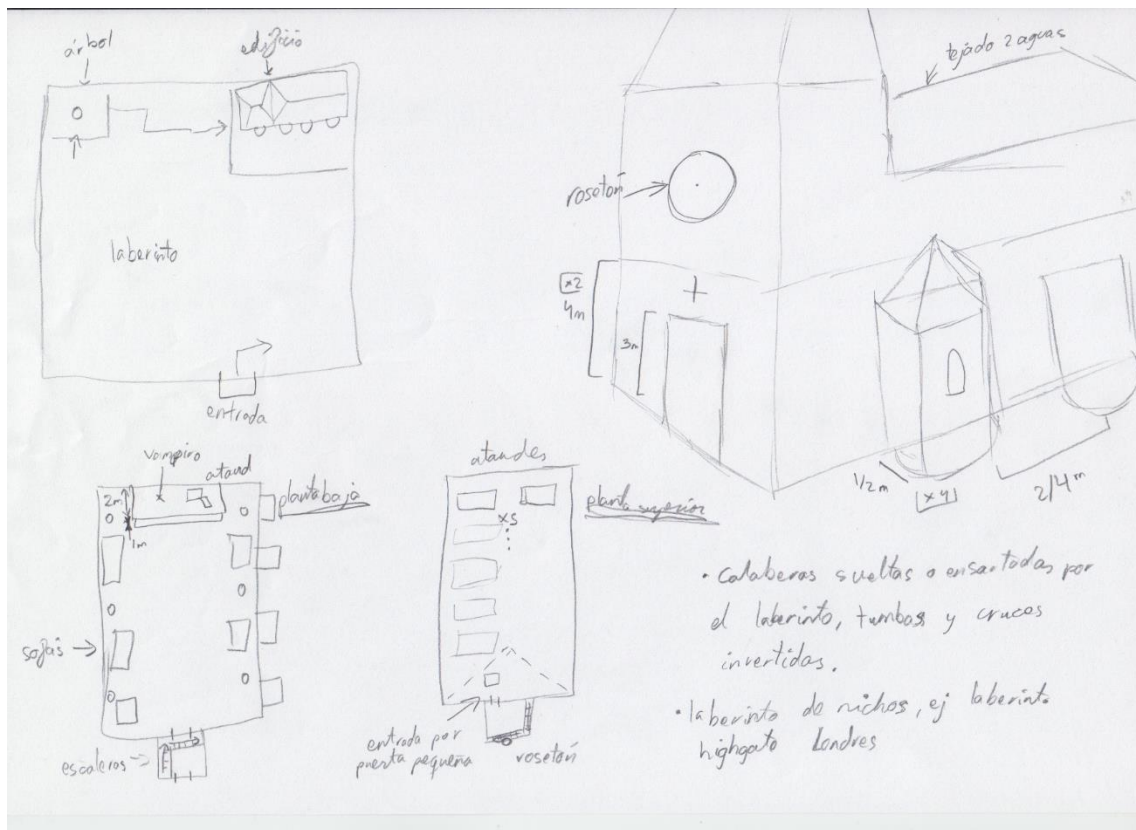 árbol
edificio
laberinto
entrada
tejado 2 aguas
rosetón
x2
4m
3m
1/2m
x4
2/4m
vampiro
ataud
2m
1m
planta baja
sofás
escaleras
ataudes
x5
planta superior
entrada por
puerta pequeña
rosetón
• Calaberas sueltas o ensartadas por
el laberinto, tumbas y cruces
invertidas.
• laberinto de nichos, ej laberinto
highgate Londres